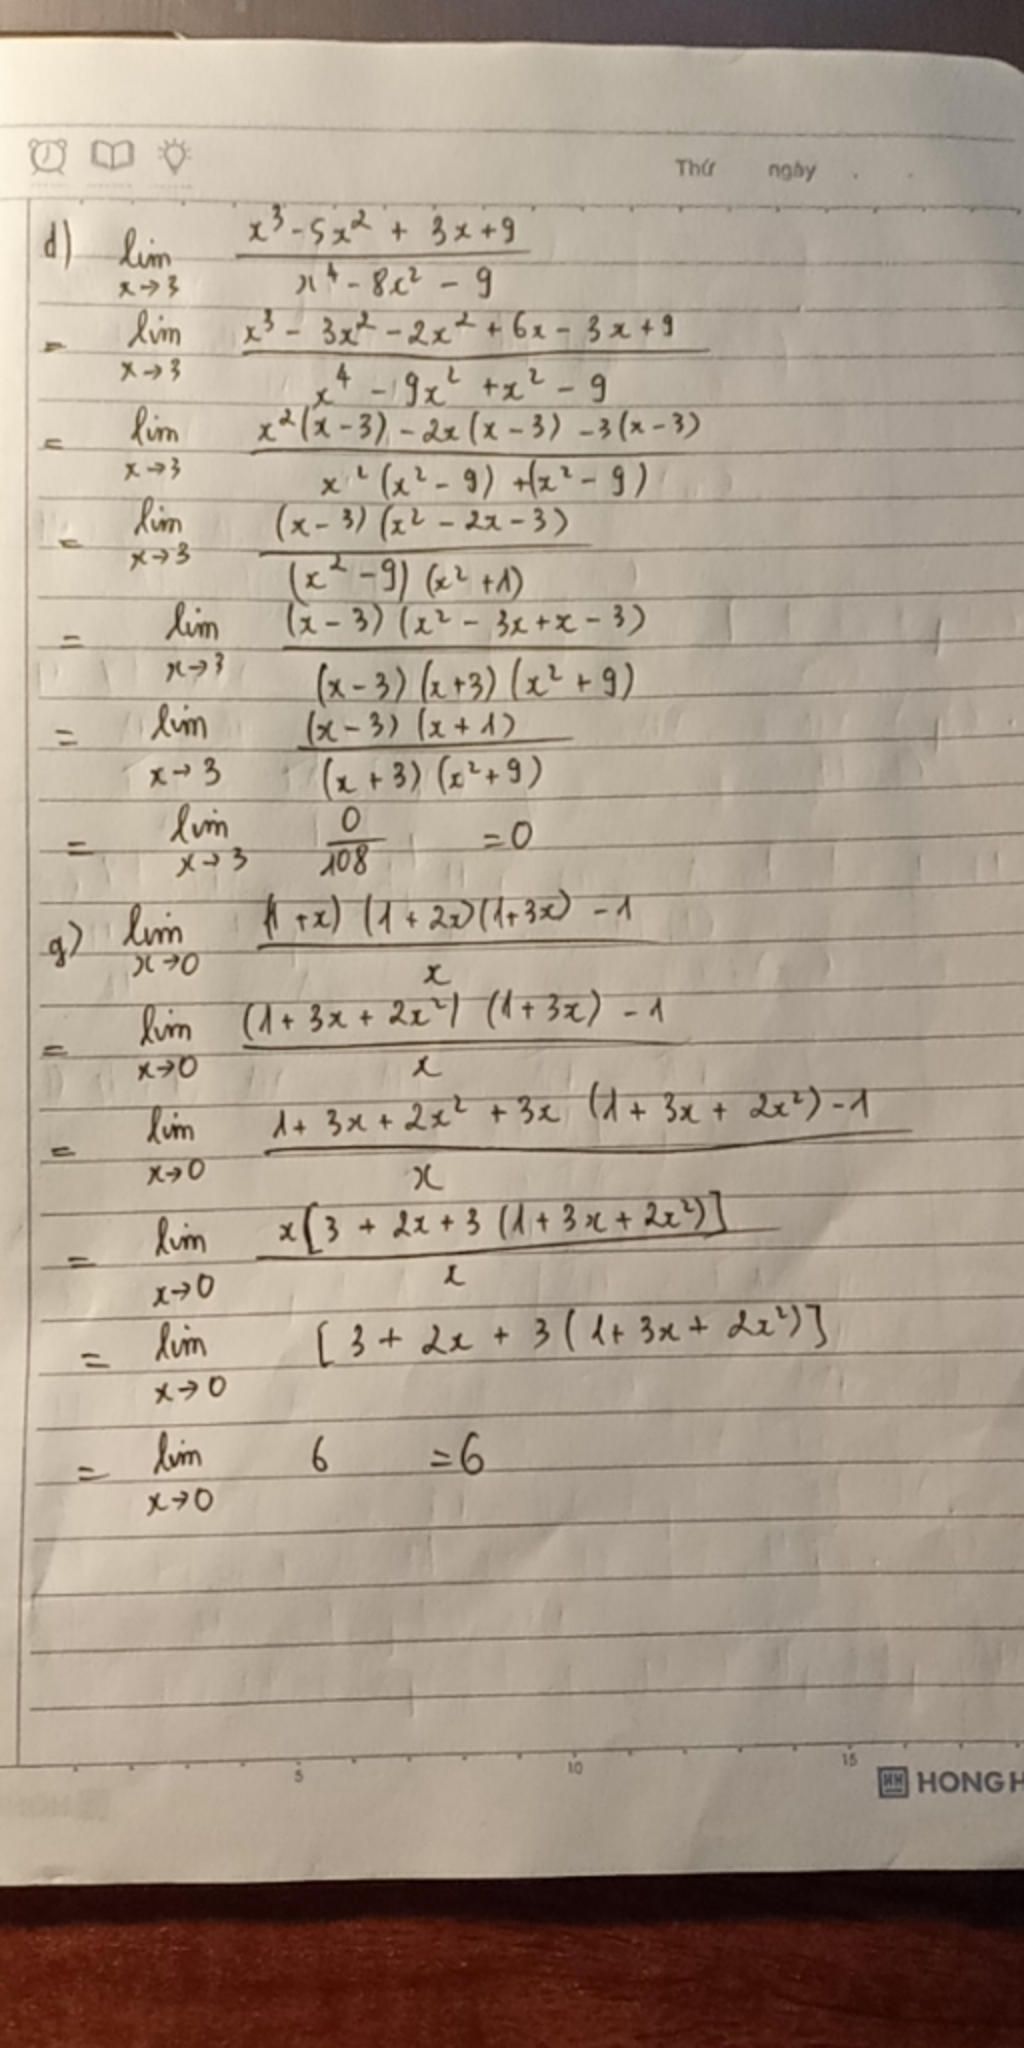 Thứ ngày
d) lim x→3 (x³ - 5x² + 3x + 9) / (x⁴ - 8x² - 9)
= lim x→3 (x³ - 3x² - 2x² + 6x - 3x + 9) / (x⁴ - 9x² + x² - 9)
= lim x→3 (x²(x-3) - 2x(x-3) - 3(x-3)) / (x²(x² - 9) + (x² - 9))
= lim x→3 ((x-3)(x² - 2x - 3)) / ((x² - 9)(x² + 1))
= lim x→3 ((x-3)(x² - 3x + x - 3)) / ((x-3)(x+3)(x² + 9))
= lim x→3 ((x-3)(x+1)) / ((x+3)(x² + 9))
= lim x→3 0/108 = 0
g) lim x→0 ((1+x)(1+2x)(1+3x) - 1) / x
= lim x→0 ((1+3x+2x²)(1+3x) - 1) / x
= lim x→0 (1+3x+2x² + 3x(1+3x+2x²) - 1) / x
= lim x→0 x[3+2x+3(1+3x+2x²)] / x
= lim x→0 [3+2x+3(1+3x+2x²)]
= lim x→0 6 = 6
5 10 15
HH HONG H